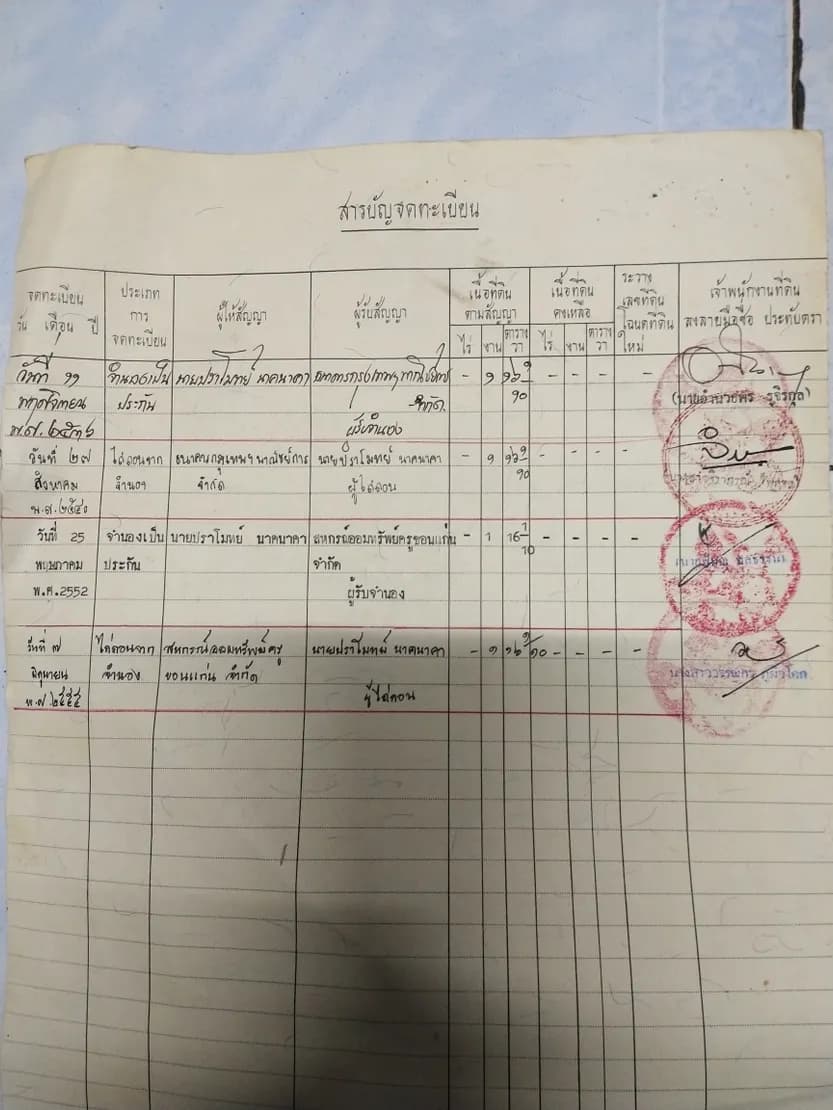 สารบัญจดทะเบียน
จดทะเบียน
วัน เดือน ปี
ประเภท
การ
จดทะเบียน
ผู้ให้สัญญา
ผู้รับสัญญา
เนื้อที่ดิน
ตามสัญญา
ไร่ งาน ตาราง
วา
เนื้อที่ดิน
คงเหลือ
ไร่ งาน ตาราง
วา
ระวาง
เลขที่ดิน
โฉนดที่ดิน
ใหม่
เจ้าพนักงานที่ดิน
ลงลายมือชื่อ ประทับตรา
วันที่ ๑๑ จำนองเป็น นายปราโมทย์ นาคนาคา ธนาคารกรุงเทพฯพาณิชย์การ - ๑ ๑๖ ๑/๑๐ - - - -
พฤศจิกายน ประกัน จำกัด (นายอำนวยพร
พ.ศ. ๒๕๓๖ ผู้รับจำนอง
วันที่ ๒๗ ไถ่ถอนจาก ธนาคารกรุงเทพฯพาณิชย์การ นายปราโมทย์ นาคนาคา - ๑ ๑๖ ๑/๑๐ - - - -
สิงหาคม จำนอง จำกัด ผู้ไถ่ถอน
พ.ศ. ๒๕๔๐
วันที่ 25 จำนองเป็น นายปราโมทย์ นาคนาคา สหกรณ์ออมทรัพย์ครูขอนแก่น - 1 16 1/10 - - - -
พฤษภาคม ประกัน จำกัด
พ.ศ. 2552 ผู้รับจำนอง
วันที่ ๗ ไถ่ถอนจาก สหกรณ์ออมทรัพย์ครู นายปราโมทย์ นาคนาคา - ๑ ๑๖ ๑/๑๐ - - - -
มิถุนายน จำนอง ขอนแก่น จำกัด
พ.ศ. ๒๕๕๕ ผู้ไถ่ถอน